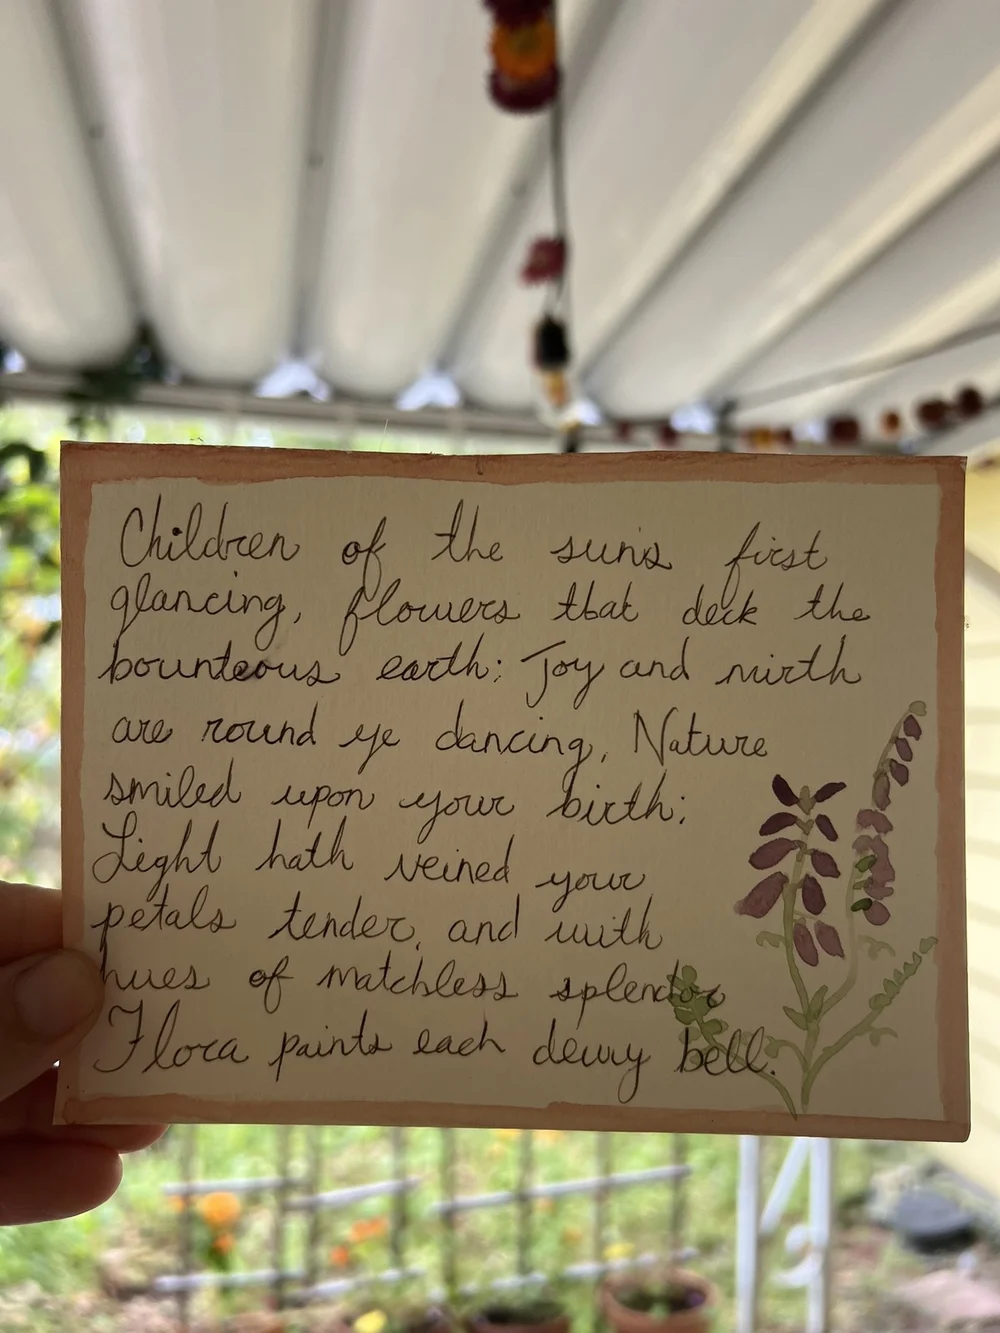 Children of the suns first
glancing, flowers that deck the
bounteous earth; Joy and mirth
are round ye dancing, Nature
smiled upon your birth;
Light hath veined your
petals tender, and with
hues of matchless splendor
Flora paints each dewy bell.